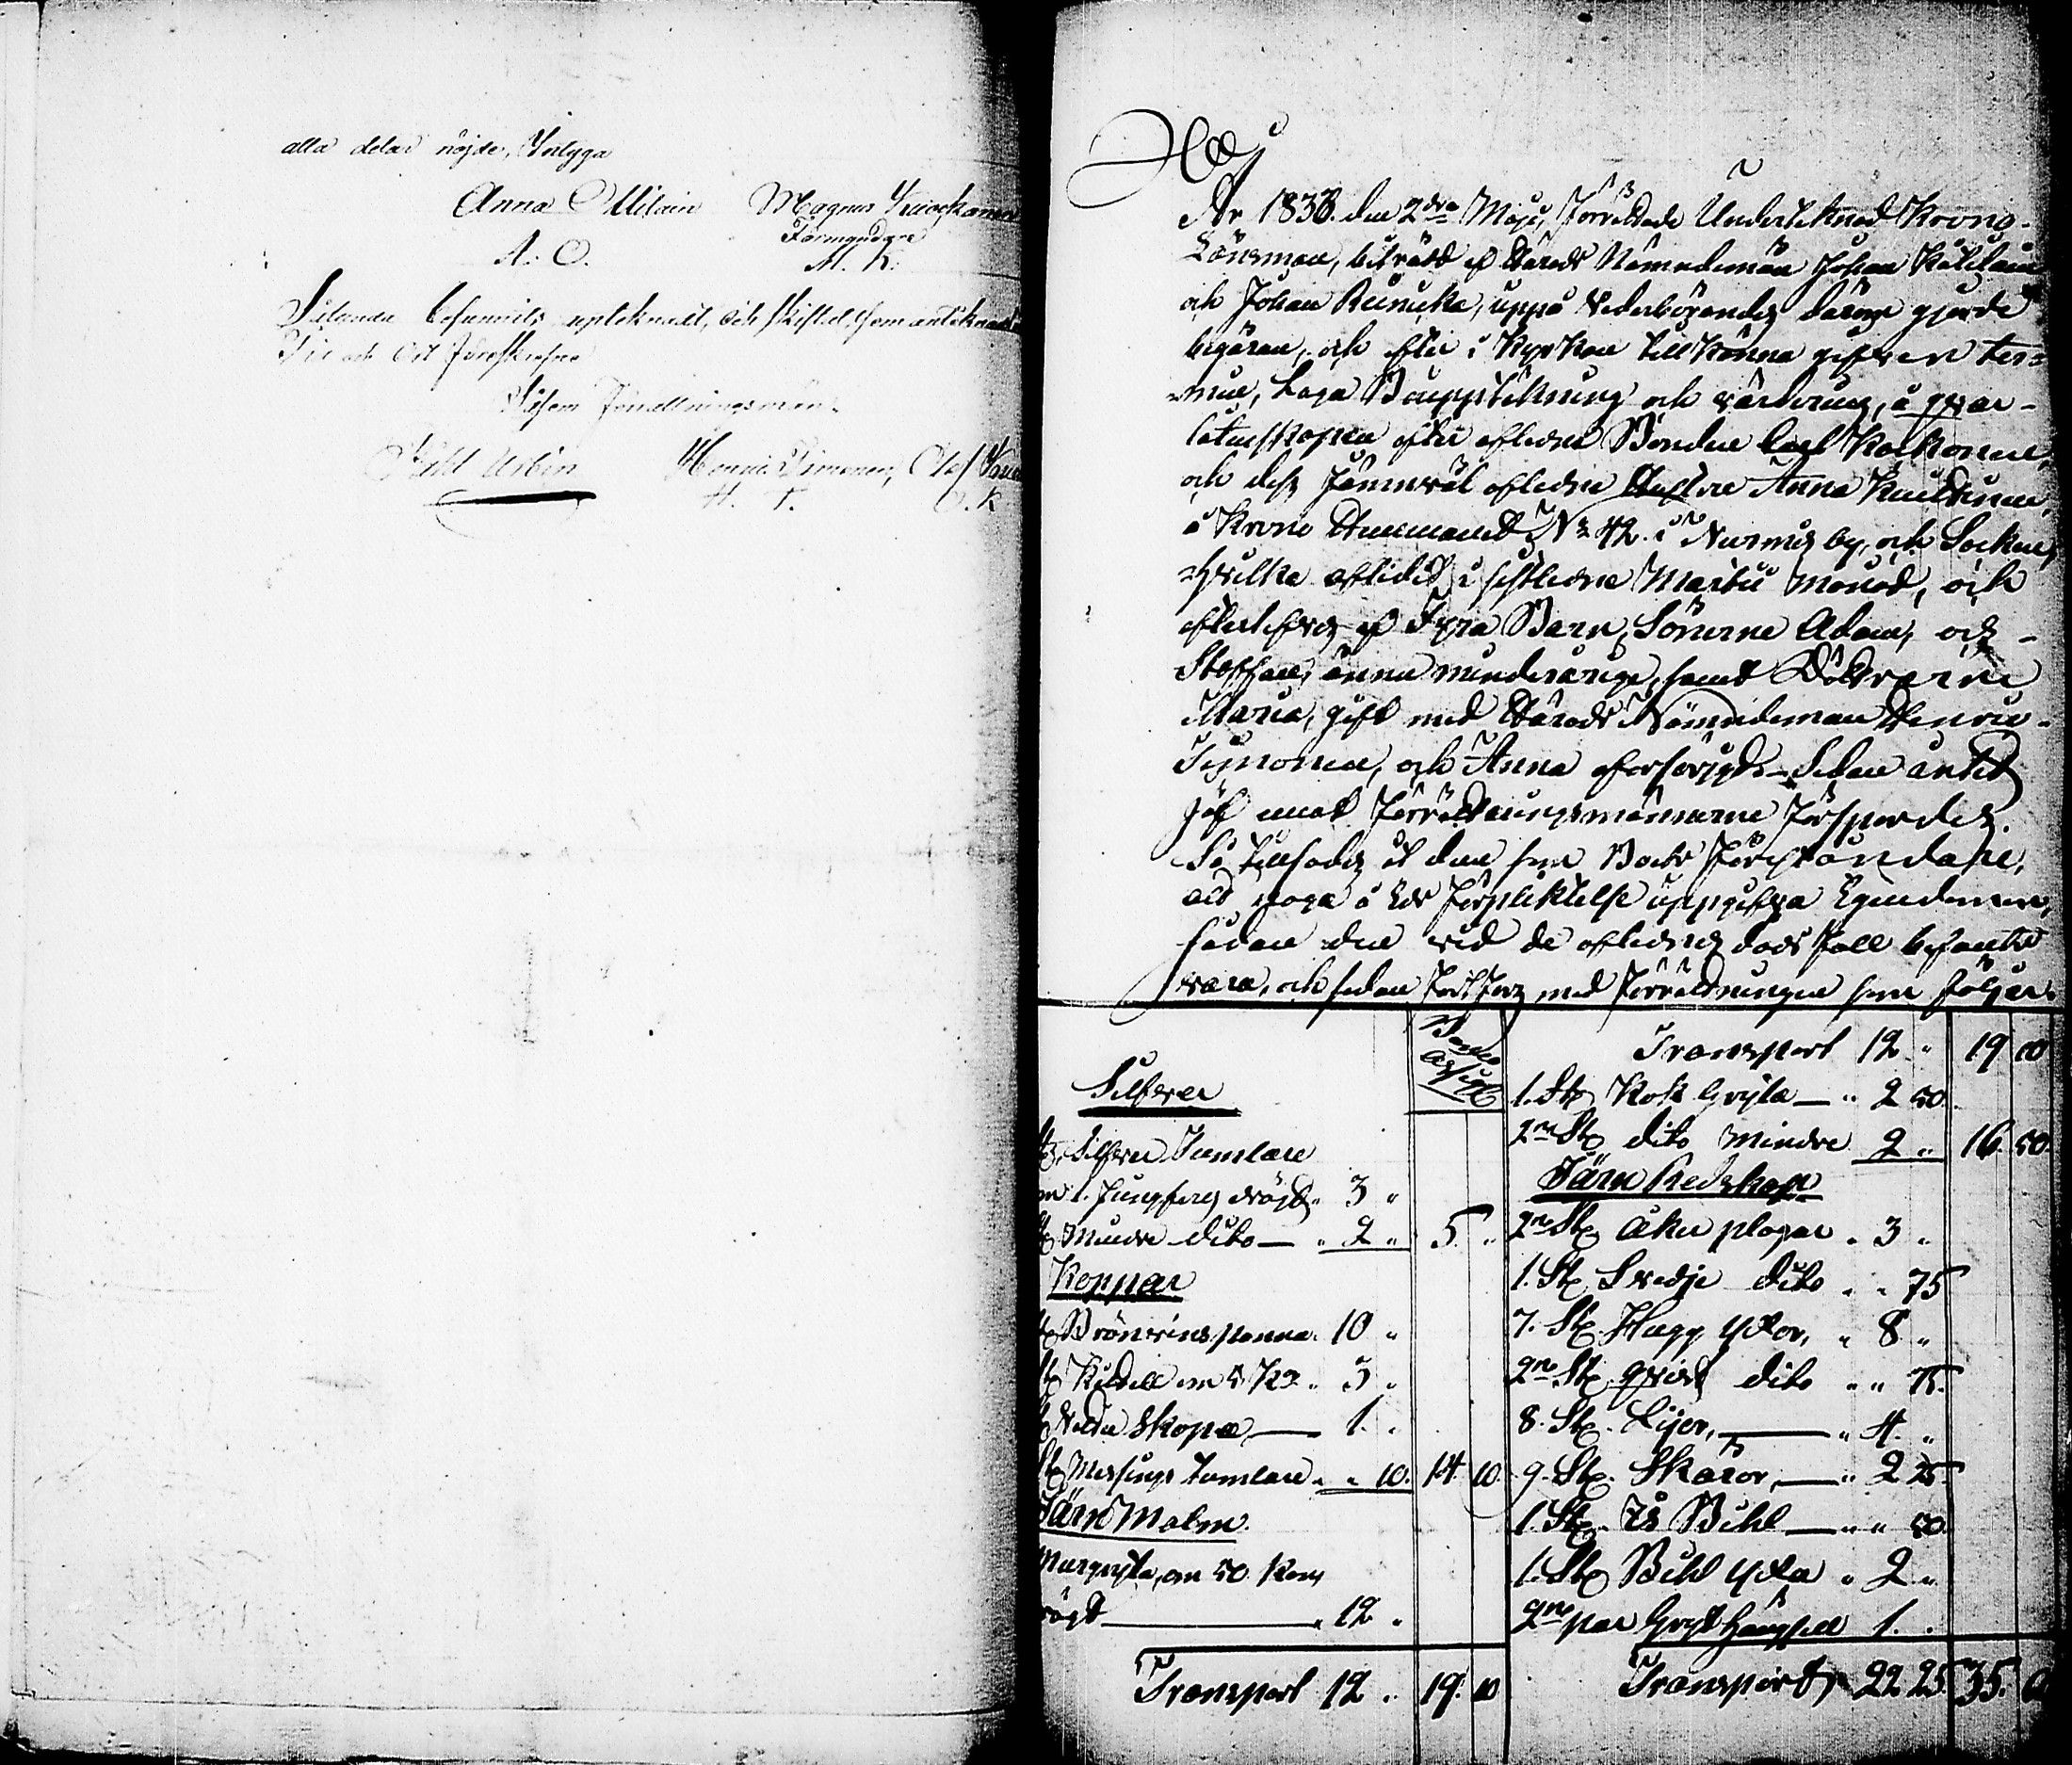 alla delar nöjde, Intyga
Anna Mitain Magnus
Förmyndare
A. O. M. K.
Sålunda befunnits uptecknadt, och skiftet, som antecknadt
Tid och Ort föreskrefne
Såsom Förrättningsmän.
Henric Timonen, Olof
H. T. O. K
År 1838. den 2dra Maji, förrättade Undertecknad Krono-
Länsman, biträdd af Härads Nämndemän Johan
och Johan Reinicka, uppå Vederbörandes därom gjorde
begäran, och efter i Kyrkan tillkänna gifven ter-
min, Laga Bouppteckning och värdering, å qvar-
låtenskapen efter afledne Bonden Carl Kockonen,
och dess jämväl afledne Hustru Anna
å Krono Hemmanet No 42. i Nurmis by och Socken,
hvilke aflidit i sistledne Martii Månad, och
efterlefves af Fyra Barn, Sönerne Adam, och
Staffan, ännu minderårige, samt Döttrarne
Maria, gift med Härads Nämndeman Henric
Timonen, och Anna oförsörgd. Sedan intet
jäf emot Förrättningsmännerne försportes.
Så tillsades åt dem som Boets Föreståndare,
att noga å Eds förpliktelse uppgifva Egendomen,
sådan den vid de aflednes döds fall befants
vara, och sedan fortfors med Förrättningen som följer.
Banco
Assign
Silfver
Silfver Tumlare
1. Jungfrus drägt " 3 "
Mindre dito — " 2 " 5. "
Koppar
Bränvins panna. 10 "
Kittell om 5 K " 3 "
Skopa — 1. "
Messings Tumlare " " 10. 14. 10
Järn Malm.
Murgryta, om 50. Kan
rögt — " 12 "
Transport 12 " 19. 10
Transport 12 " 19 10
1. St. Kok Gryta — " 2 50
2ne St. dito mindre 2 " 16. 50.
Järn Redskap
2ne St. åker plogar " 3 "
1. St. Svedje dito " " 75
7. St. Hugg yxor, " 8 "
2ne St. qvist dito " " 75.
8. St. Lijer, — " 4. "
9. St. Skäror, — " 2 25
1. St. Is Bihl — " " 50
1. St. Bihl yxa " 2 "
2ne par Gryt Hängsell 1. "
Transport 22 25 35.